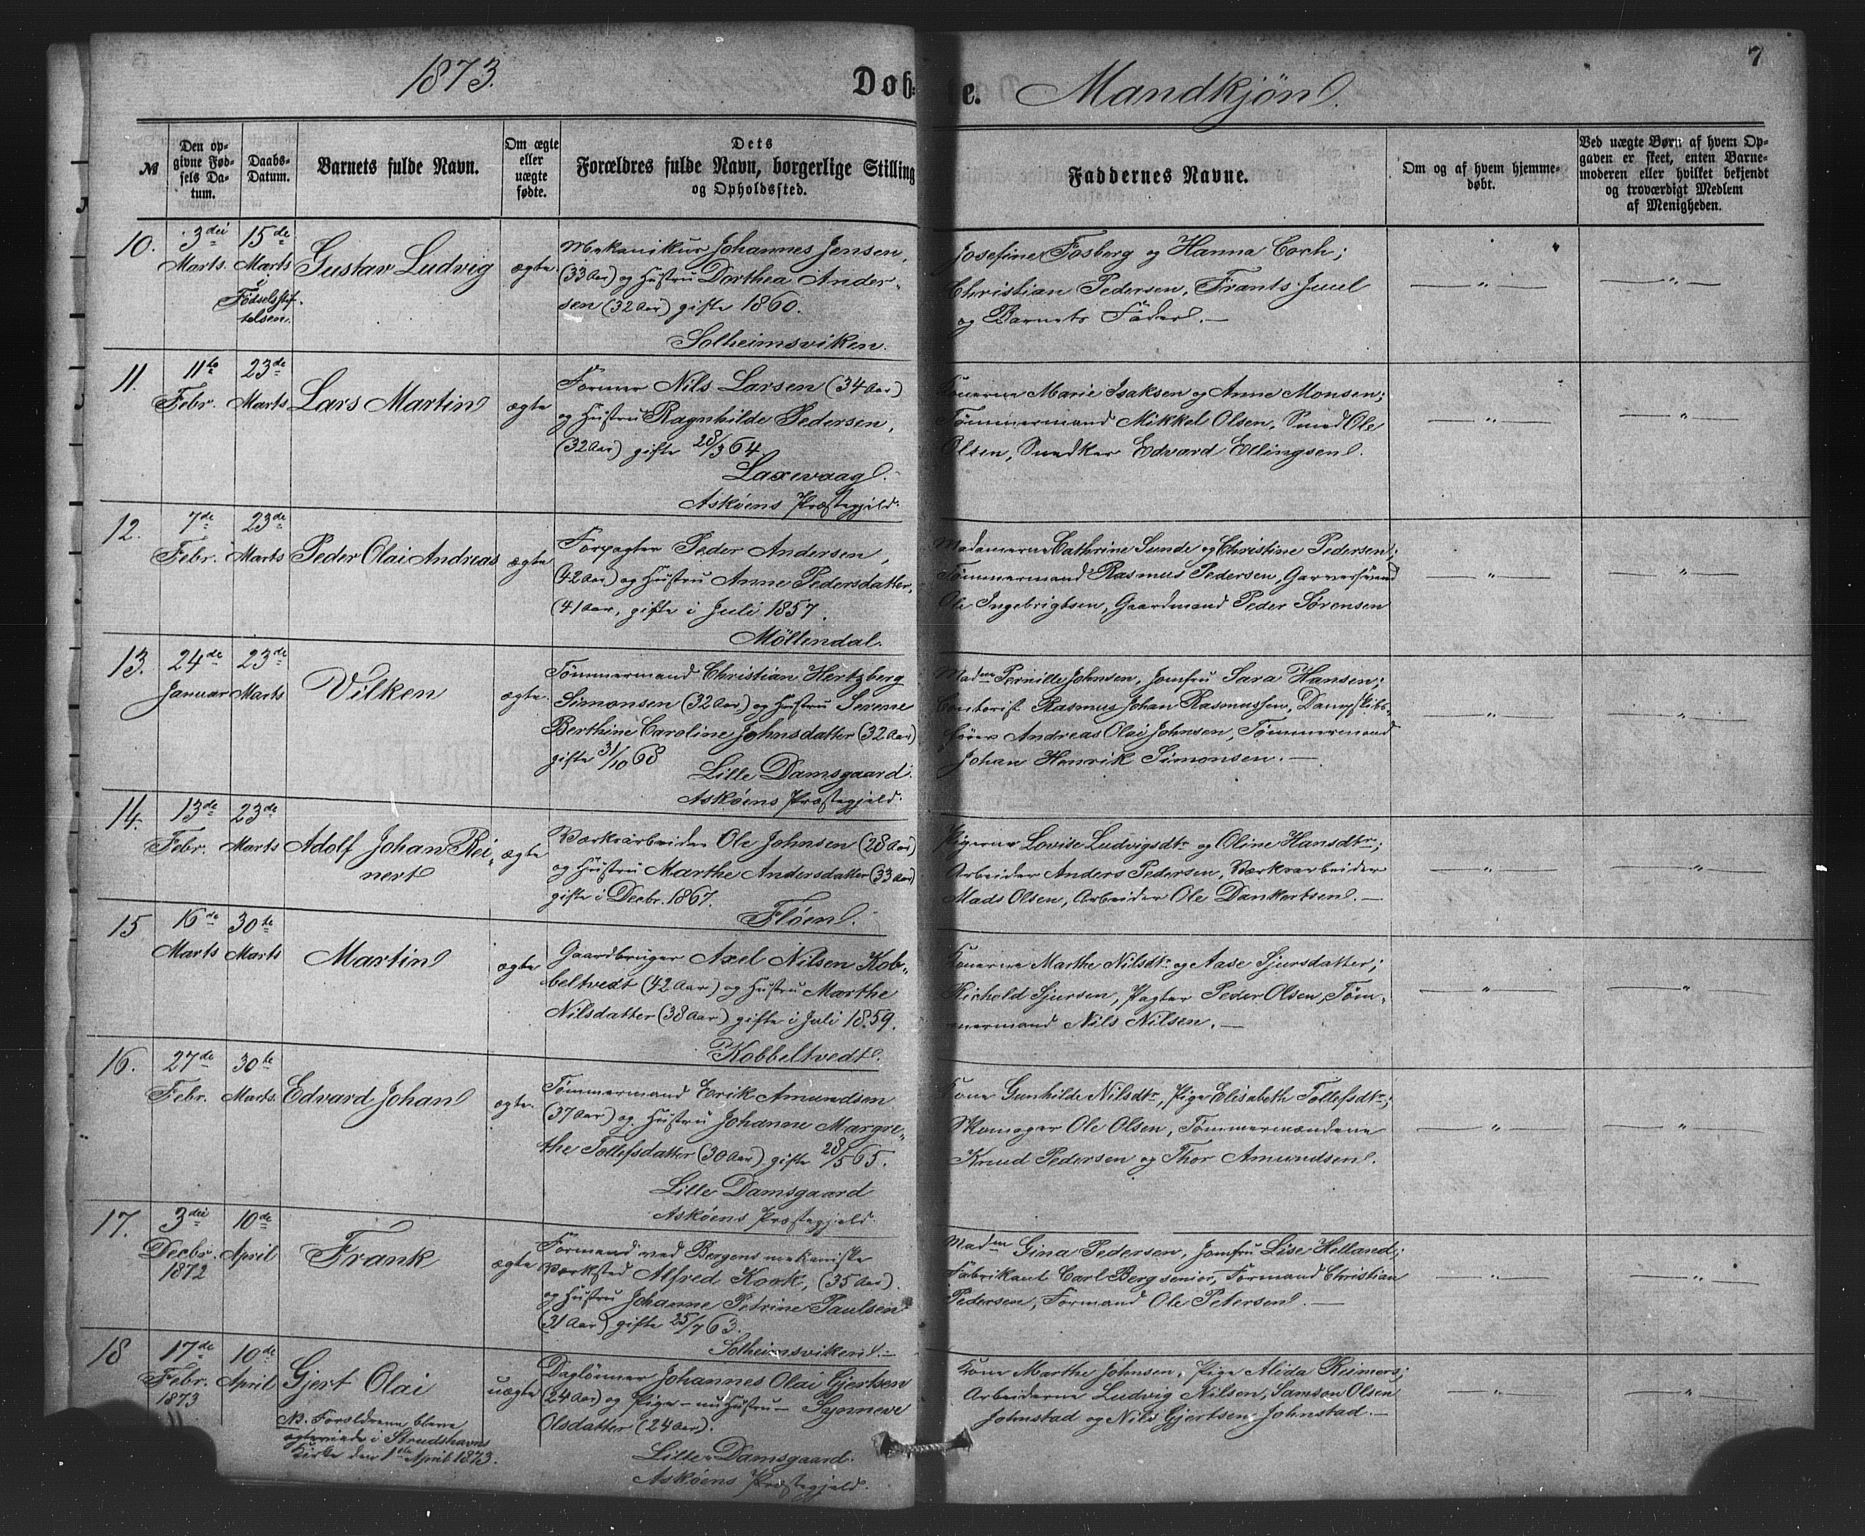 1873.
Døbte. Mandkjøn.
7
№
Den opgivne Fødsels Datum.
Daabs-Datum.
Barnets fulde Navn.
Om ægte eller uægte fødte.
Dets Forældres fulde Navn, borgerlige Stilling og Opholdssted.
Faddernes Navne.
Om og af hvem hjemmedøbt.
Ved uægte Børn af hvem Opgaven er skeet, enten Barnemoderen eller hvilket bekjendt og troværdigt Medlem af Menigheden.
10. 3die Marts. 15de Marts i Fødselsstiftelsen.
Gustav Ludvig
ægte
Mekanikus Johannes Jensen,
(33 Aar) og Hustru Dorthea Ander-
sen (32 Aar) gifte 1860.
Solheimsviken.
Josefine Fosberg og Hanna Corh;
Christian Pedersen, Frants Juul
og Barnets Fader. —
11. 11te Febr. 23de Marts
Lars Martin
ægte
Former Nils Larsen (34 Aar)
og Hustru Ragnhilde Pedersen,
(32 Aar) gifte 28/3 64.
Laxevaag.
Askøens Præstegjeld.
Konerne Marie Isaksen og Anne Monsen;
Tømmermand Mikkel Olsen, Smed Ole
Olsen, Snedker Edvard Ellingsen.
12. 7de Febr. 23de Marts
Peder Olai Andreas
ægte
Forpagter Peder Andersen,
(42 Aar) og Hustru Anne Pedersdatter,
(41 Aar, gifte i Juli 1857.
Møllendal.
Madamerne Cathrine Sunde og Christine Pedersen;
Tømmermand Rasmus Pedersen, Garversvend
Ole Ingebrigtsen, Gaardmand Peder Sørensen
13. 24de Januar 23de Marts
Vilken
ægte.
Tømmermand Christian Hertzberg
Simonsen (32 Aar) og Hustru Serene
Berthine Caroline Johnsdatter (32 Aar)
gifte 31/10 68
Lille Damsgaard.
Askøens Præstegjeld.
Madme Pernille Johnsen, Jomfru Sara Hansen;
Contorist Rasmus Johan Rasmussen, Dampskibs-
fører Andreas Olai Johnsen, Tømmermand
Johan Henrik Simonsen. —
14. 13de Febr. 23de Marts
Adolf Johan Rei-
nert
ægte
Værksarbeider Ole Johnsen (28 Aar)
og Hustru Marthe Andersdatter (33 Aar)
gifte i Decbr. 1867.
Fløen.
Pigerne Lovise Ludvigsdtr og Oline Hansdtr;
Arbeider Anders Pedersen, Værksarbeider
Mads Olsen, Arbeider Ole Dankertsen. —
15 16de Marts 30te Marts
Martin
ægte
Gaardbruger Axel Nilsen Kob-
beltvedt (42 Aar) og Hustru Marthe
Nilsdatter (38 Aar) gifte i Juli 1859.
Kobbeltvedt.
Konerne Marthe Nilsdtr og Aase Sjursdatter;
Richold Sjursen, Pagter Peder Olsen, Tøm-
mermand Nils Nilsen. —
16. 27de Febr. 30te Marts.
Edvard Johan
ægte.
Tømmermand Erik Amundsen
(37 Aar) og Hustru Johanne Margre-
the Tollefsdatter (30 Aar) gifte 28/5 65.
Lille Damsgaard
Askøens Præstegjeld.
Kone Gunhilde Nilsdtr, Pige Elisabeth Tollefsdtr;
Skomager Ole Olsen, Tømmermændene
Knud Pedersen og Thor Amundsen.
17. 3die Decbr. 1872 10de April
Frank
ægte
Formand ved Bergens mekaniske
Værksted Alfred Kook, (35 Aar).
og Hustru Johanne Petrine Paulsen
(31 Aar) gifte 25/7 63.
Solheimsviken. —
Madme Gina Pedersen, Jomfru Lise Helland;
Fabrikant Carl Berg senior, Formand Christian
Pedersen, Formand Ole Petersen. —
18 17de Febr. 1873 10de April
Gjert Olai
NB. Forældrene bleve
ægteviede i Strudshavns
Kirke den 1ste April 1873.
uægte
Daglønner Johannes Olai Gjertsen
(24 Aar) og Pige – nu Hustru – Synneve
Olsdatter (24 Aar).
Lille Damsgaard.
Askøens Præstegjeld.
Kone Marthe Johnsen, Pige Alida Reimers;
Arbeiderne Ludvig Nilsen, Samson Olsen
Johnstad og Nils Gjertsen Johnstad. —